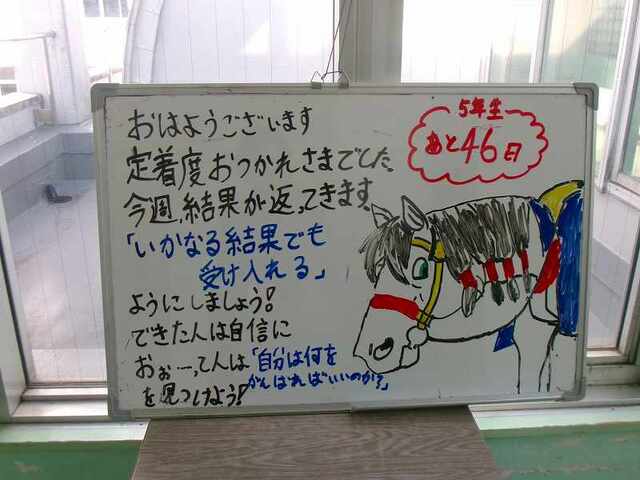 おはようございます
定着度おつかれさまでした。
今週、結果が返ってきます。
「いかなる結果でも
受け入れる」
ようにしましょう!
できた人は自信に
おぉー…て人は「自分は何を
がんばればいいのか?」
を見つけよう!
5年生
あと46日